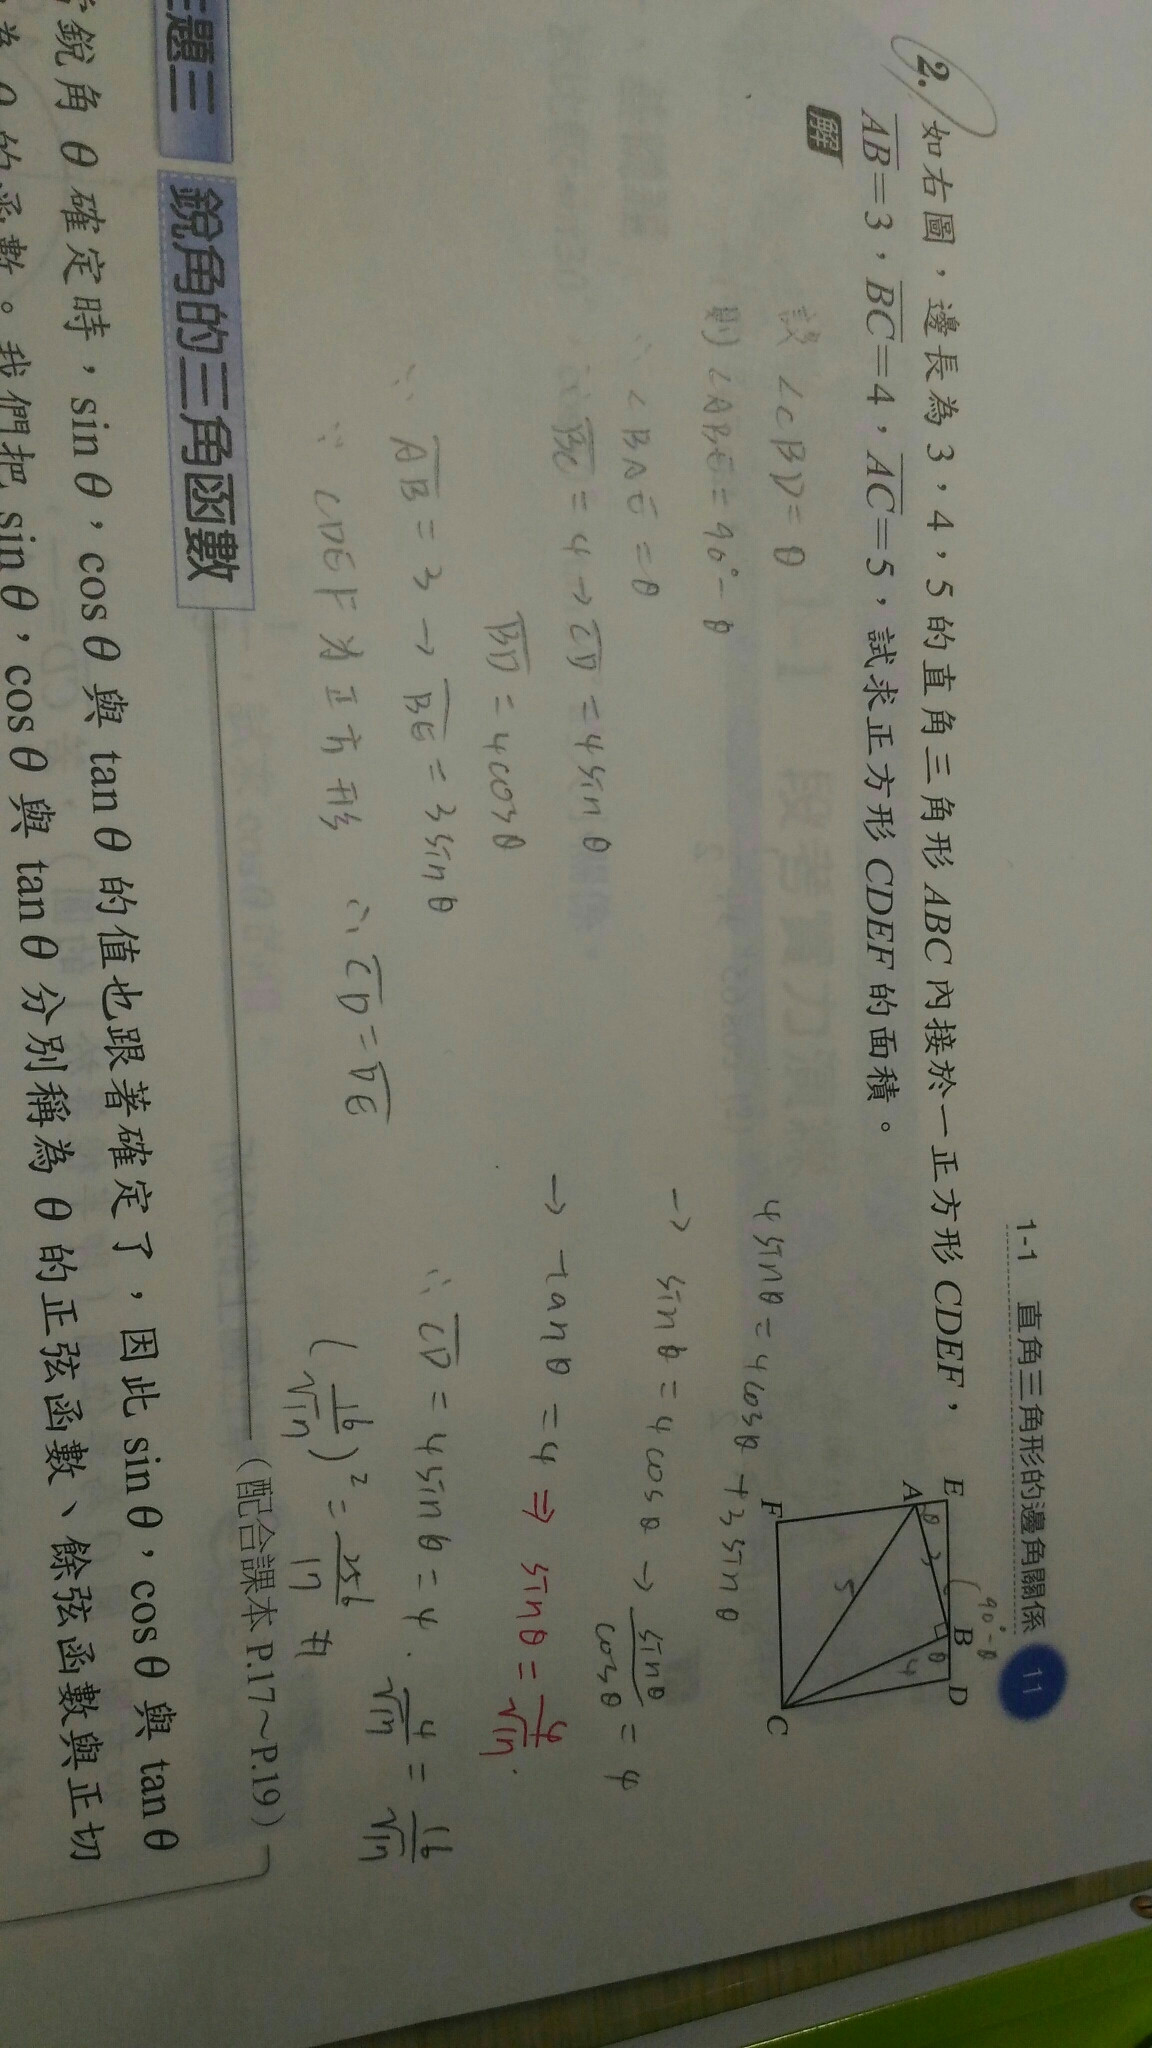 1-1 直角三角形的邊角關係 11
2. 如右圖，邊長為3，4，5的直角三角形ABC內接於一正方形CDEF，
AB=3，BC=4，AC=5，試求正方形CDEF的面積。
E 90°-θ B D
θ 3 θ
A 4
5
F C
解
設 ∠CBD=θ
則 ∠ABE=90°-θ
∴ ∠BAE=θ
∵ BC=4→CD=4sinθ
BD=4cosθ
∵ AB=3→BE=3sinθ
∵ CDEF为正方形 ∴ CD=DE
4sinθ=4cosθ+3sinθ
→ sinθ=4cosθ → sinθ/cosθ=4
→ tanθ=4 ⇒ sinθ=4/√17.
∴ CD=4sinθ=4·4/√17=16/√17
(16/√17)²=256/17 #
主題三 銳角的三角函數
(配合課本P.17～P.19)
銳角θ確定時，sinθ，cosθ與tanθ的值也跟著確定了，因此sinθ，cosθ與tanθ
為θ的函數。我們把sinθ，cosθ與tanθ分別稱為θ的正弦函數、餘弦函數與正切